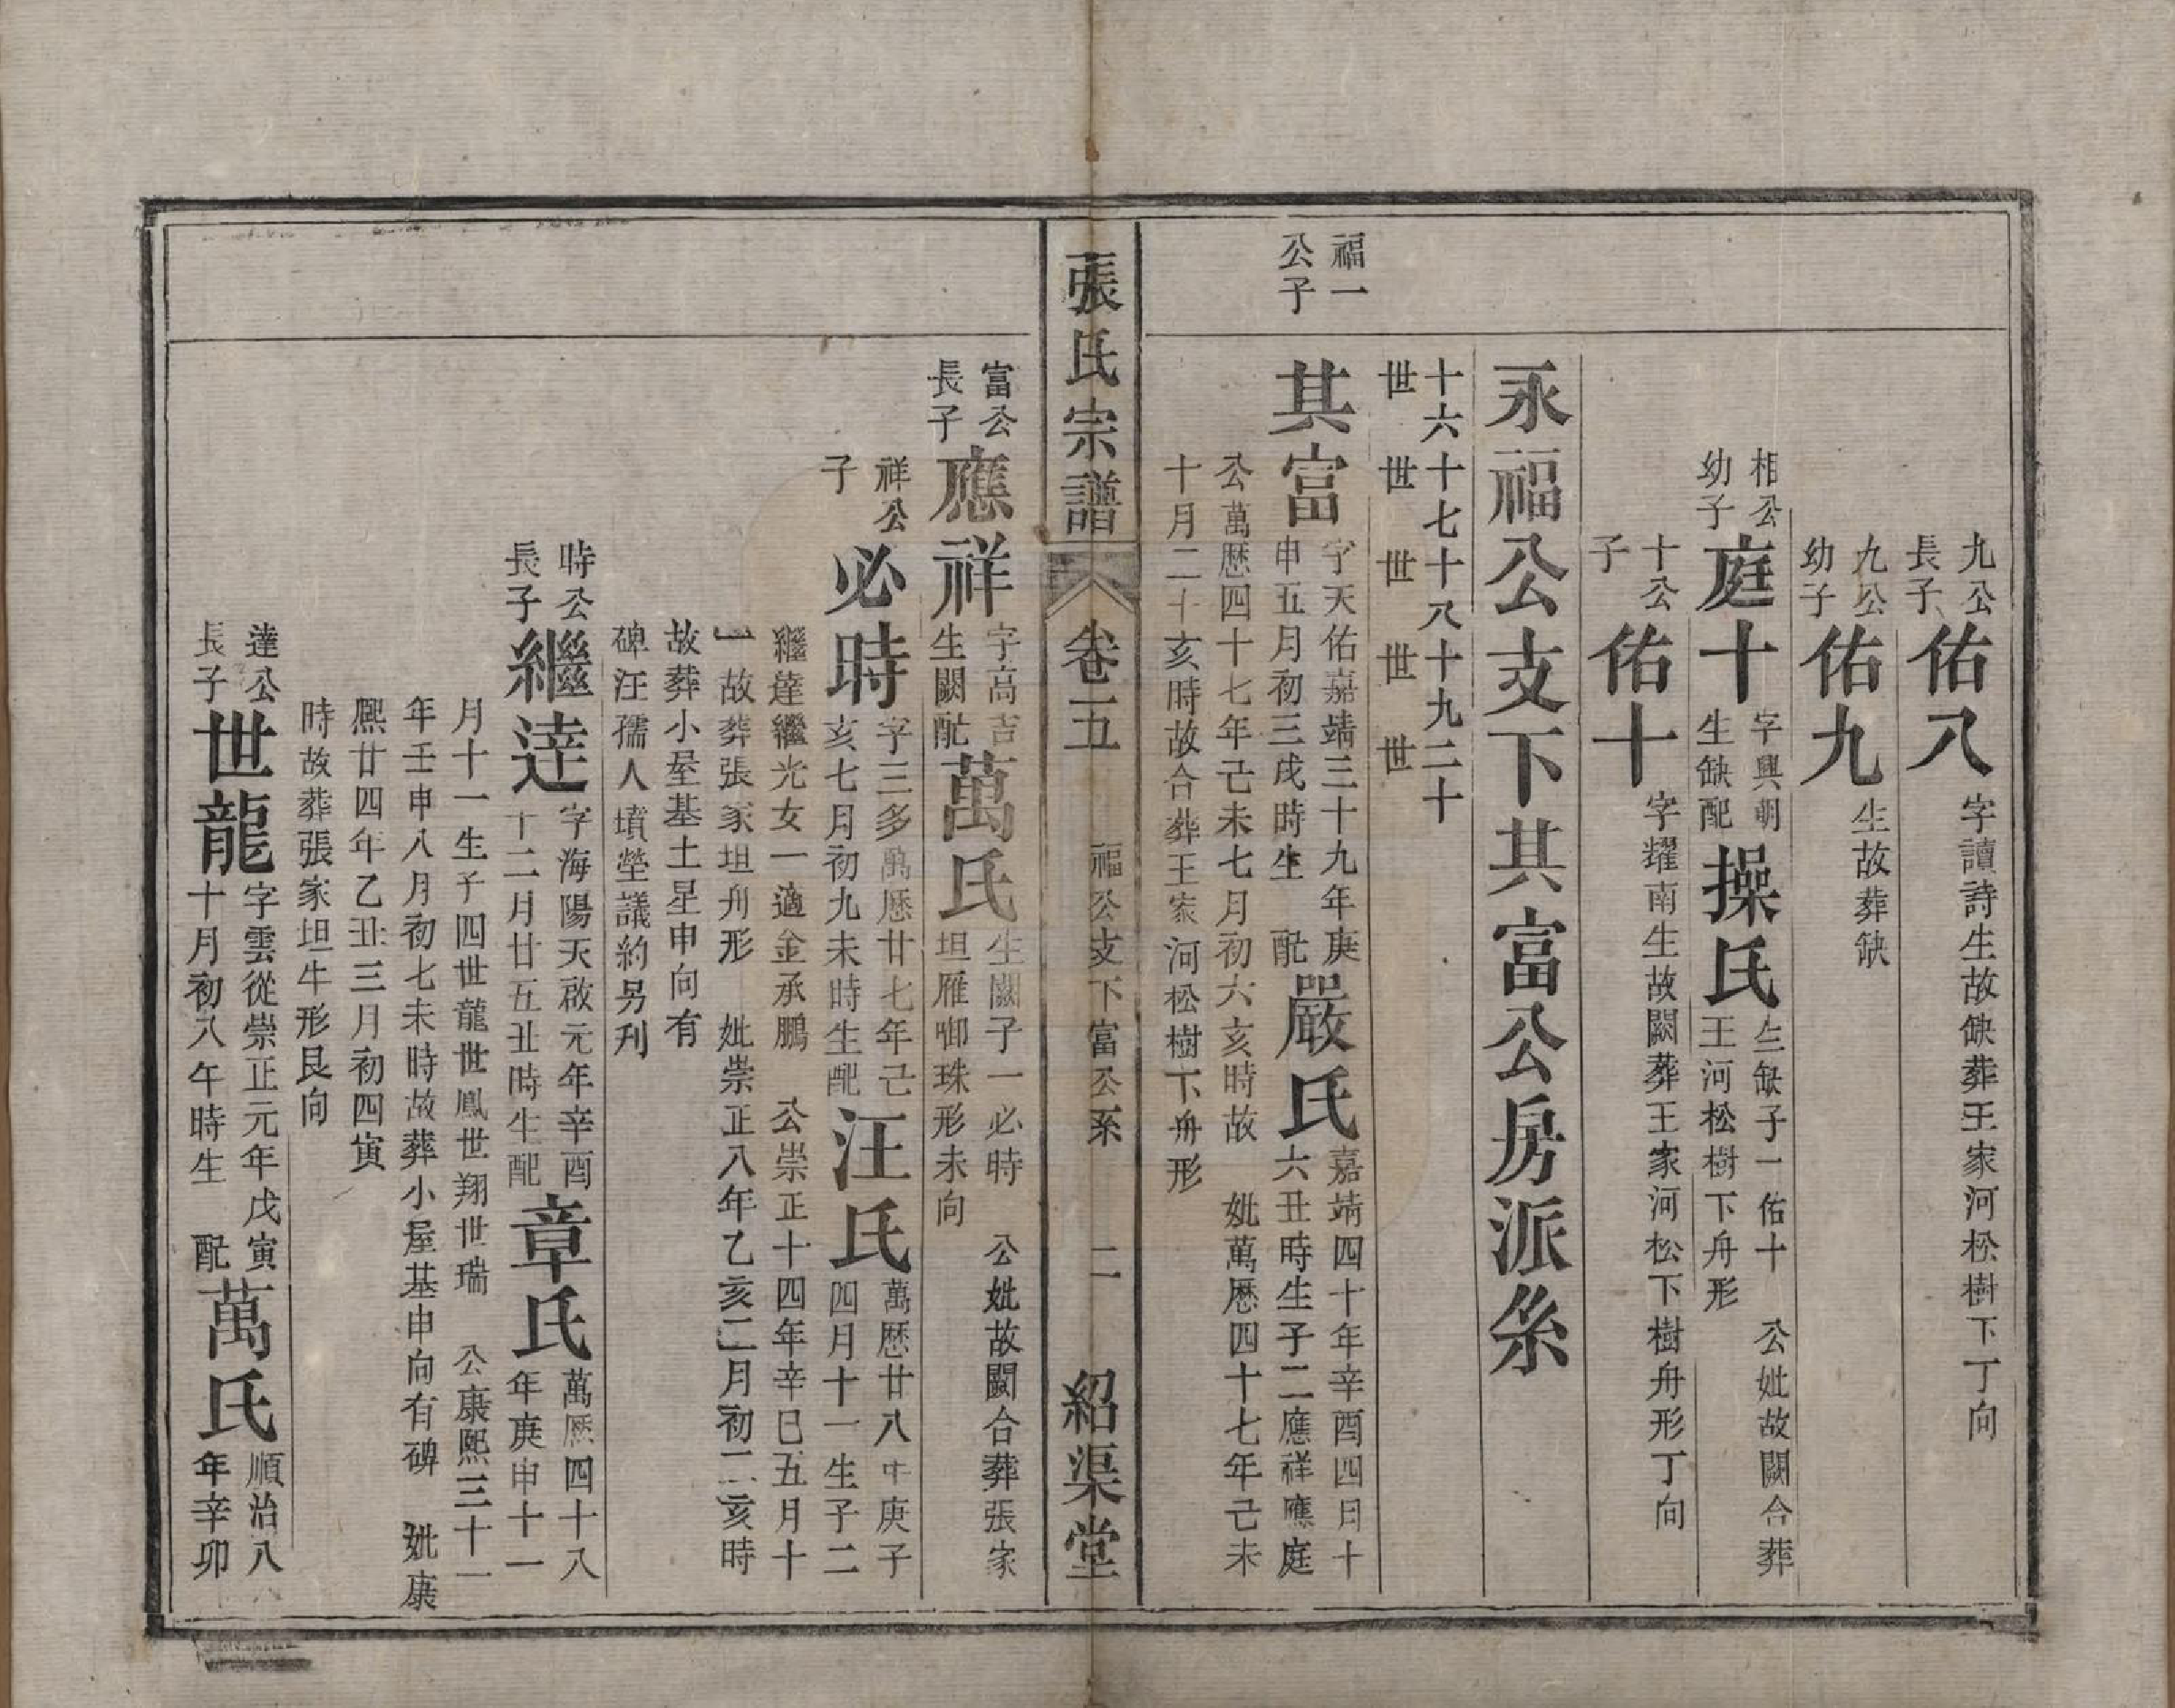 九公
長子
佑八
字讀詩生故缺葬王家河松樹下丁向
九公
幼子
佑九
生故葬缺
相公
幼子
庭十
字興朗
生缺配
操氏
生缺子一佑十　公妣故闕合葬
王河松樹下舟形
十公
子
佑十
字耀南生故闕葬王家河松下樹舟形丁向
永福公支下其富公房派系
十六十七十八十九二十
世世世世世
福一
公子
其富
字天佑嘉靖三十九年庚
申五月初三戌時生　配
嚴氏
嘉靖四十年辛酉四日十
六丑時生子二應祥應庭
公萬歷四十七年己未七月初六亥時故　妣萬歷四十七年己未
十月二十亥時故合葬王家河松樹下舟形
張氏宗譜
卷五
福公支下富公系
二
紹渠堂
富公
長子
應祥
字高吉
生闕配
萬氏
生闕子一必時　公妣故闕合葬張家
坦雁啣珠形未向
祥公
子
必時
字三多萬歷廿七年己
亥七月初九未時生配
汪氏
萬歷廿八年庚子
四月十一生子二
繼達繼光女一適金承鵬　公崇正十四年辛巳五月十
一故葬張家坦舟形　妣崇正八年乙亥二月初二亥時
故葬小屋基土星申向有
碑汪孺人墳塋議約另刋
時公
長子
繼達
字海陽天啟元年辛酉
十二月廿五丑時生配
章氏
萬歷四十八
年庚申十一
月十一生子四世龍世鳳世翔世瑞　公康熙三十一
年壬申八月初七未時故葬小屋基申向有碑　妣康
熙廿四年乙丑三月初四寅
時故葬張家坦牛形艮向
達公
長子
世龍
字雲從崇正元年戊寅
十月初八午時生　配
萬氏
順治八
年辛卯